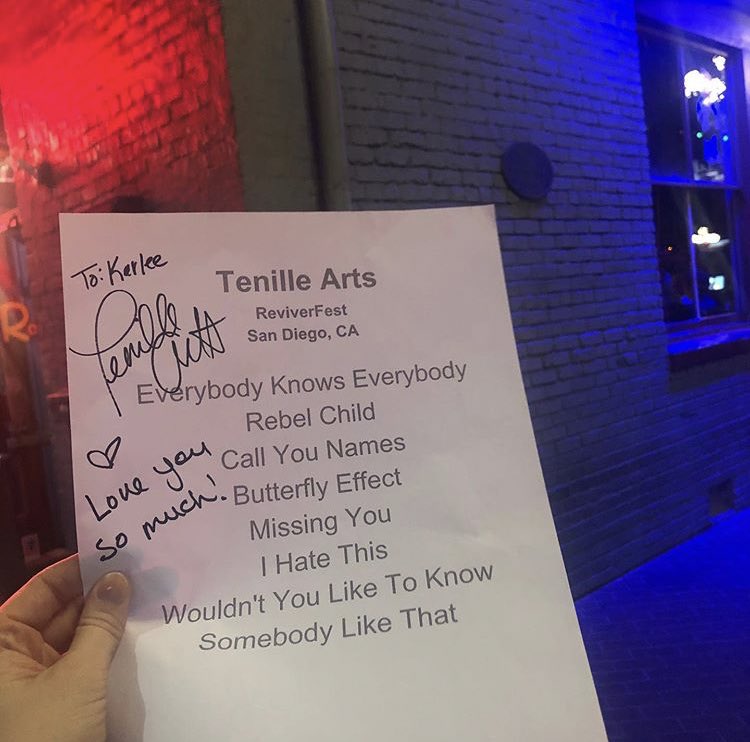 To: Kerlee
Tenille Arts
Tenille Arts
ReviverFest
San Diego, CA
Everybody Knows Everybody
Rebel Child
Call You Names
Butterfly Effect
Missing You
I Hate This
Wouldn't You Like To Know
Somebody Like That
♡
Love you
so much!
R